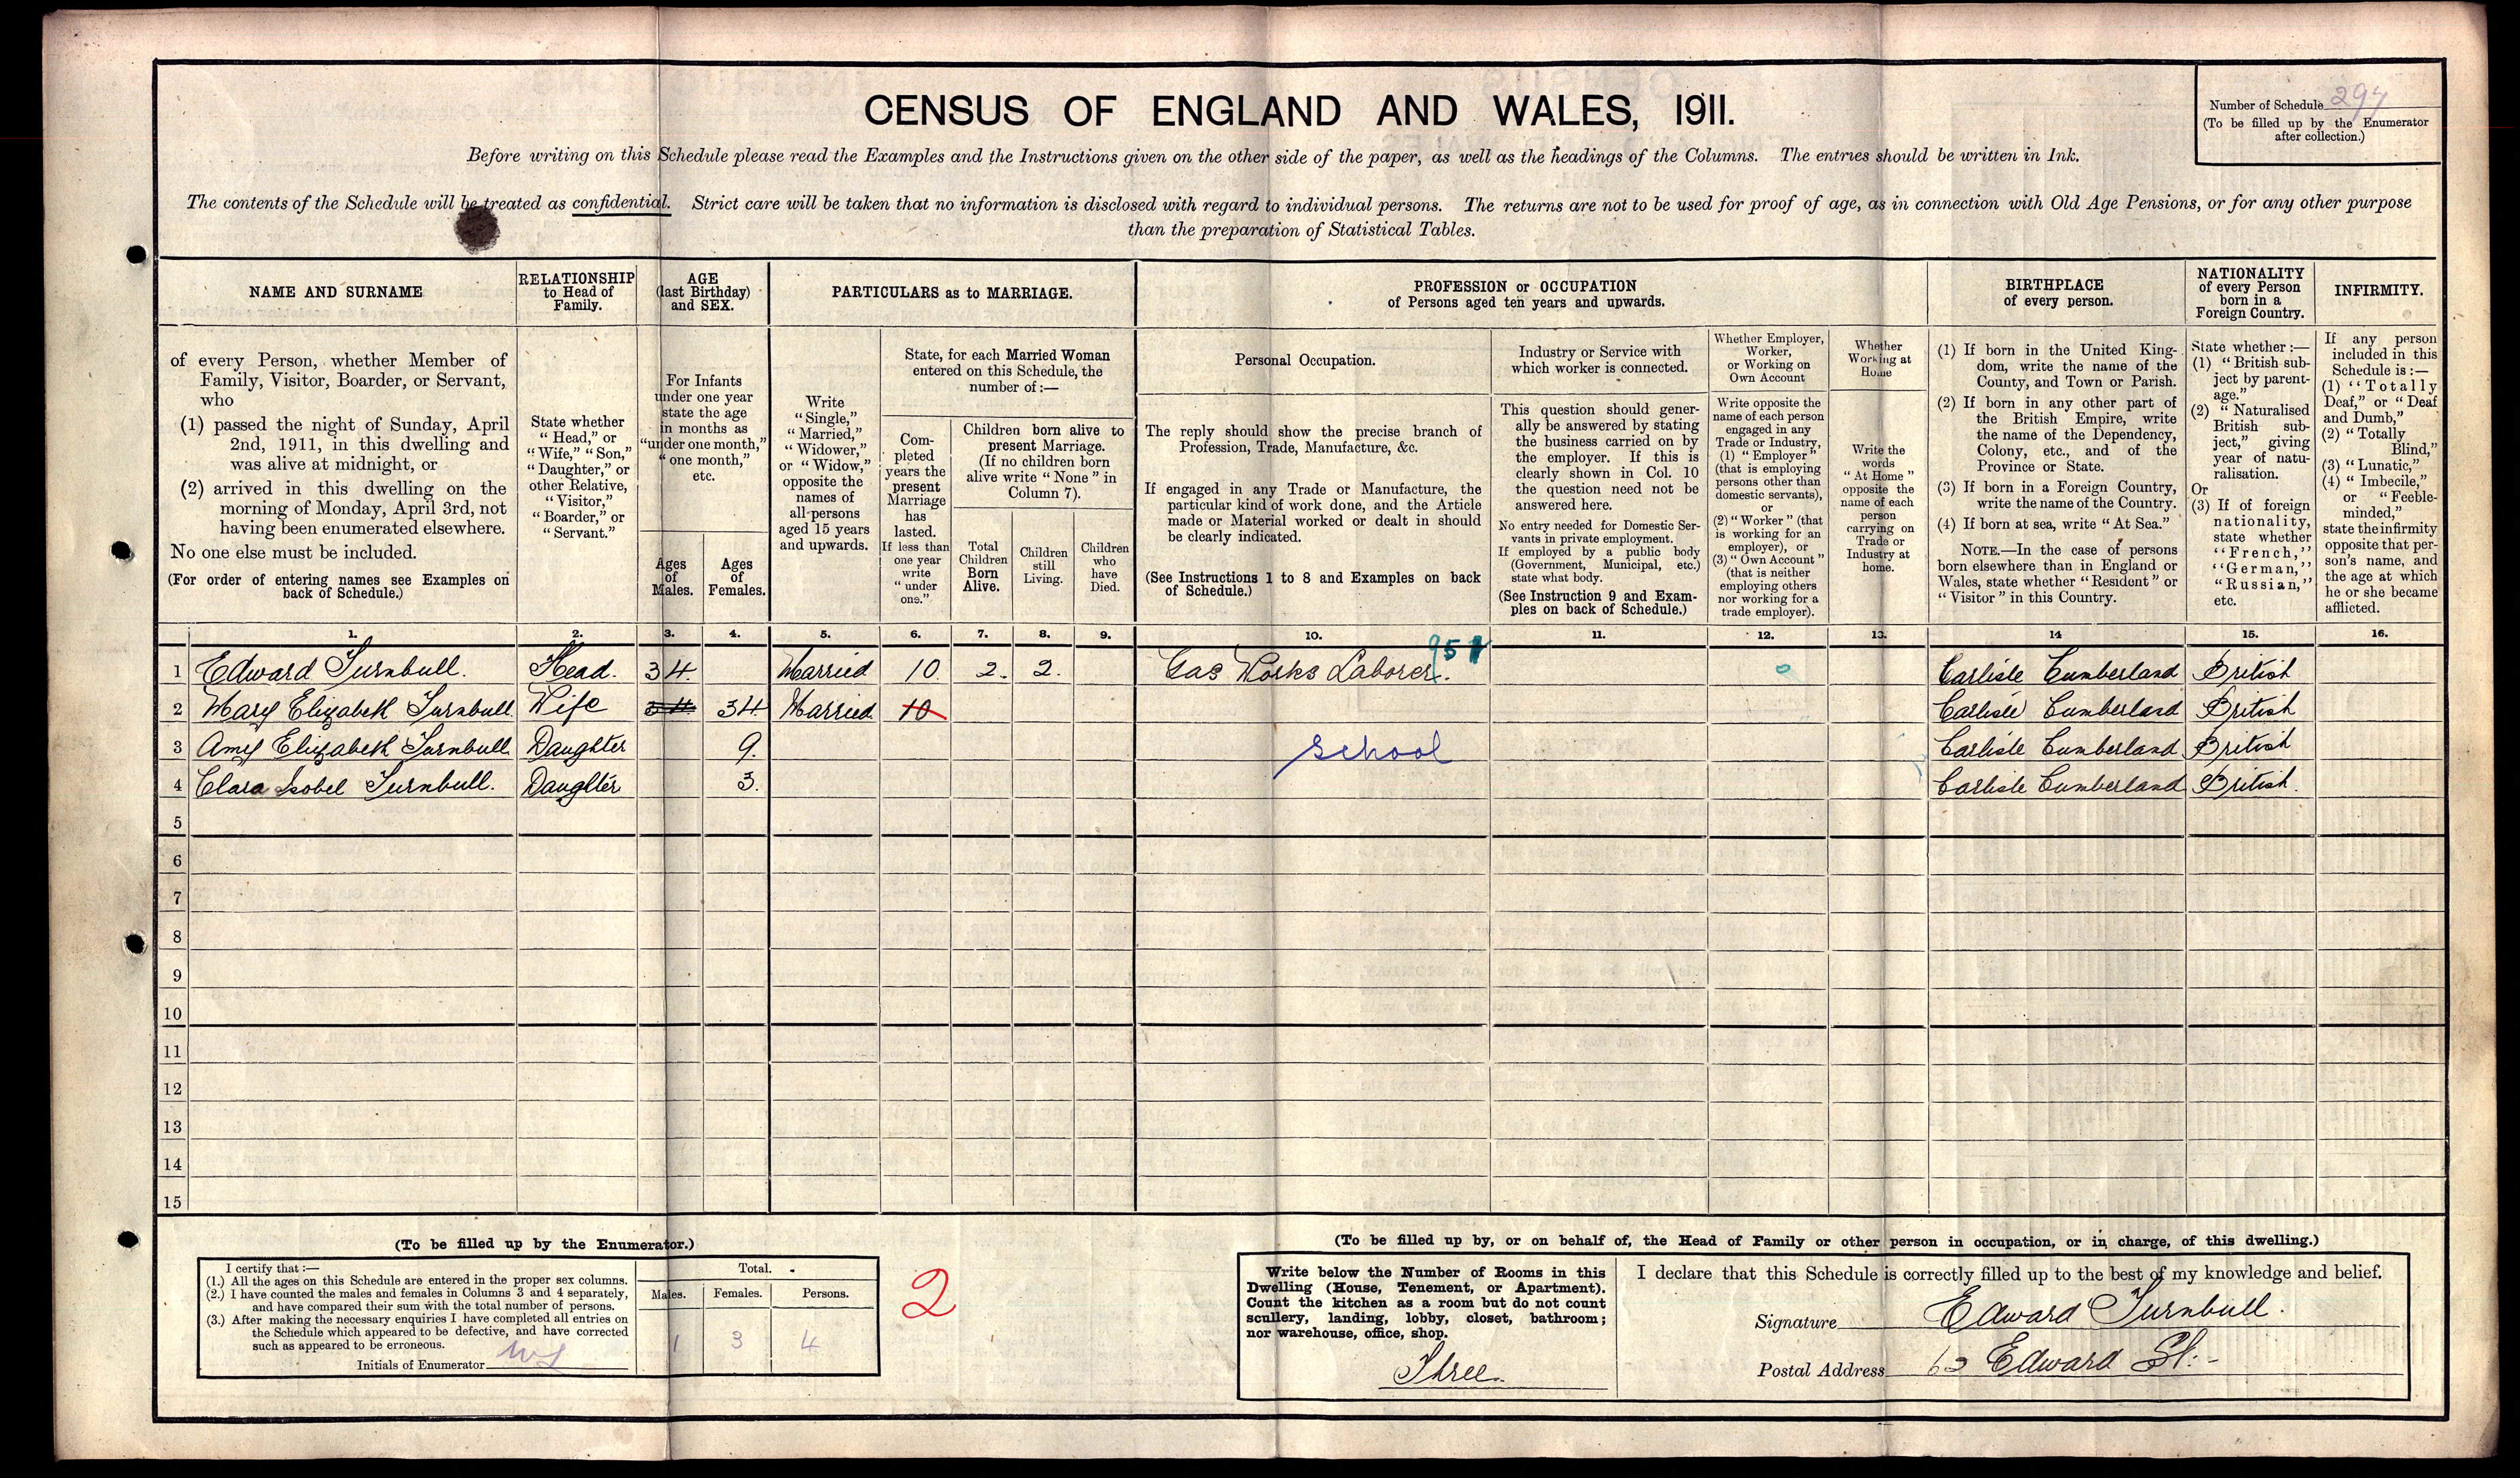 CENSUS OF ENGLAND AND WALES, 1911.
Number of Schedule 297
(To be filled up by the Enumerator
after collection.)
Before writing on this Schedule please read the Examples and the Instructions given on the other side of the paper, as well as the headings of the Columns. The entries should be written in Ink.
The contents of the Schedule will be treated as confidential. Strict care will be taken that no information is disclosed with regard to individual persons. The returns are not to be used for proof of age, as in connection with Old Age Pensions, or for any other purpose
than the preparation of Statistical Tables.
NAME AND SURNAME
of every Person, whether Member of
Family, Visitor, Boarder, or Servant,
who
(1) passed the night of Sunday, April
2nd, 1911, in this dwelling and
was alive at midnight, or
(2) arrived in this dwelling on the
morning of Monday, April 3rd, not
having been enumerated elsewhere.
No one else must be included.
(For order of entering names see Examples on
back of Schedule.)
RELATIONSHIP
to Head of
Family.
State whether
"Head," or
"Wife," "Son,"
"Daughter," or
other Relative,
"Visitor,"
"Boarder," or
"Servant."
AGE
(last Birthday)
and SEX.
For Infants
under one year
state the age
in months as
"under one month,"
"one month,"
etc.
Ages
of
Males.
Ages
of
Females.
PARTICULARS as to MARRIAGE.
Write
"Single,"
"Married,"
"Widower,"
or "Widow,"
opposite the
names of
all persons
aged 15 years
and upwards.
State, for each Married Woman
entered on this Schedule, the
number of:—
Com-
pleted
years the
present
Marriage
has
lasted.
If less than
one year
write
"under
one."
Children born alive to
present Marriage.
(If no children born
alive write "None" in
Column 7).
Total
Children
Born
Alive.
Children
still
Living.
Children
who
have
Died.
PROFESSION or OCCUPATION
of Persons aged ten years and upwards.
Personal Occupation.
The reply should show the precise branch of
Profession, Trade, Manufacture, &c.
If engaged in any Trade or Manufacture, the
particular kind of work done, and the Article
made or Material worked or dealt in should
be clearly indicated.
(See Instructions 1 to 8 and Examples on back
of Schedule.)
Industry or Service with
which worker is connected.
This question should gener-
ally be answered by stating
the business carried on by
the employer. If this is
clearly shown in Col. 10
the question need not be
answered here.
No entry needed for Domestic Ser-
vants in private employment.
If employed by a public body
(Government, Municipal, etc.)
state what body.
(See Instruction 9 and Exam-
ples on back of Schedule.)
Whether Employer,
Worker,
or Working on
Own Account
Write opposite the
name of each person
engaged in any
Trade or Industry,
(1) "Employer"
(that is employing
persons other than
domestic servants),
or
(2) "Worker" (that
is working for an
employer), or
(3) "Own Account"
(that is neither
employing others
nor working for a
trade employer).
Whether
Working at
Home
Write the
words
"At Home"
opposite the
name of each
person
carrying on
Trade or
Industry at
home.
BIRTHPLACE
of every person.
(1) If born in the United King-
dom, write the name of the
County, and Town or Parish.
(2) If born in any other part of
the British Empire, write
the name of the Dependency,
Colony, etc., and of the
Province or State.
(3) If born in a Foreign Country,
write the name of the Country.
(4) If born at sea, write "At Sea."
NOTE.—In the case of persons
born elsewhere than in England or
Wales, state whether "Resident" or
"Visitor" in this Country.
NATIONALITY
of every Person
born in a
Foreign Country.
State whether:—
(1) "British sub-
ject by parent-
age."
(2) "Naturalised
British sub-
ject," giving
year of natu-
ralisation.
Or
(3) If of foreign
nationality,
state whether
"French,"
"German,"
"Russian,"
etc.
INFIRMITY.
If any person
included in this
Schedule is:—
(1) "Totally
Deaf," or "Deaf
and Dumb,"
(2) "Totally
Blind,"
(3) "Lunatic,"
(4) "Imbecile,"
or "Feeble-
minded,"
state the infirmity
opposite that per-
son's name, and
the age at which
he or she became
afflicted.
1. 2. 3. 4. 5. 6. 7. 8. 9. 10. 11. 12. 13. 14 15. 16.
951
1 Edward Turnbull. Head. 34. Married 10. 2. 2. Gas Works Laborer. 0 Carlisle Cumberland British
2 Mary Elizabeth Turnbull. Wife 34 34 Married 10 Carlisle Cumberland British
3 Amy Elizabeth Turnbull Daughter 9. School Carlisle Cumberland British
4 Clara Isobel Turnbull. Daughter 3. Carlisle Cumberland British.
5
6
7
8
9
10
11
12
13
14
15
(To be filled up by the Enumerator.)
I certify that:—
(1.) All the ages on this Schedule are entered in the proper sex columns.
(2.) I have counted the males and females in Columns 3 and 4 separately,
and have compared their sum with the total number of persons.
(3.) After making the necessary enquiries I have completed all entries on
the Schedule which appeared to be defective, and have corrected
such as appeared to be erroneous.
Initials of Enumerator
Total.
Males. Females. Persons.
1 3 4
2
(To be filled up by, or on behalf of, the Head of Family or other person in occupation, or in charge, of this dwelling.)
Write below the Number of Rooms in this
Dwelling (House, Tenement, or Apartment).
Count the kitchen as a room but do not count
scullery, landing, lobby, closet, bathroom;
nor warehouse, office, shop.
Three.
I declare that this Schedule is correctly filled up to the best of my knowledge and belief.
Signature Edward Turnbull.
Postal Address Edward St.